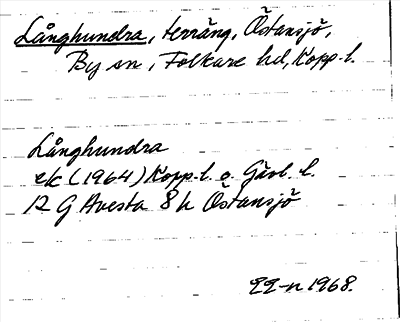 Långhundra, terräng, Östansjö,
By sn, Folkare hd, Kopp. l.
Långhundra
ek (1964) Kopp. l. o. Gävl. l.
12 G Avesta 8h Östansjö
1968.